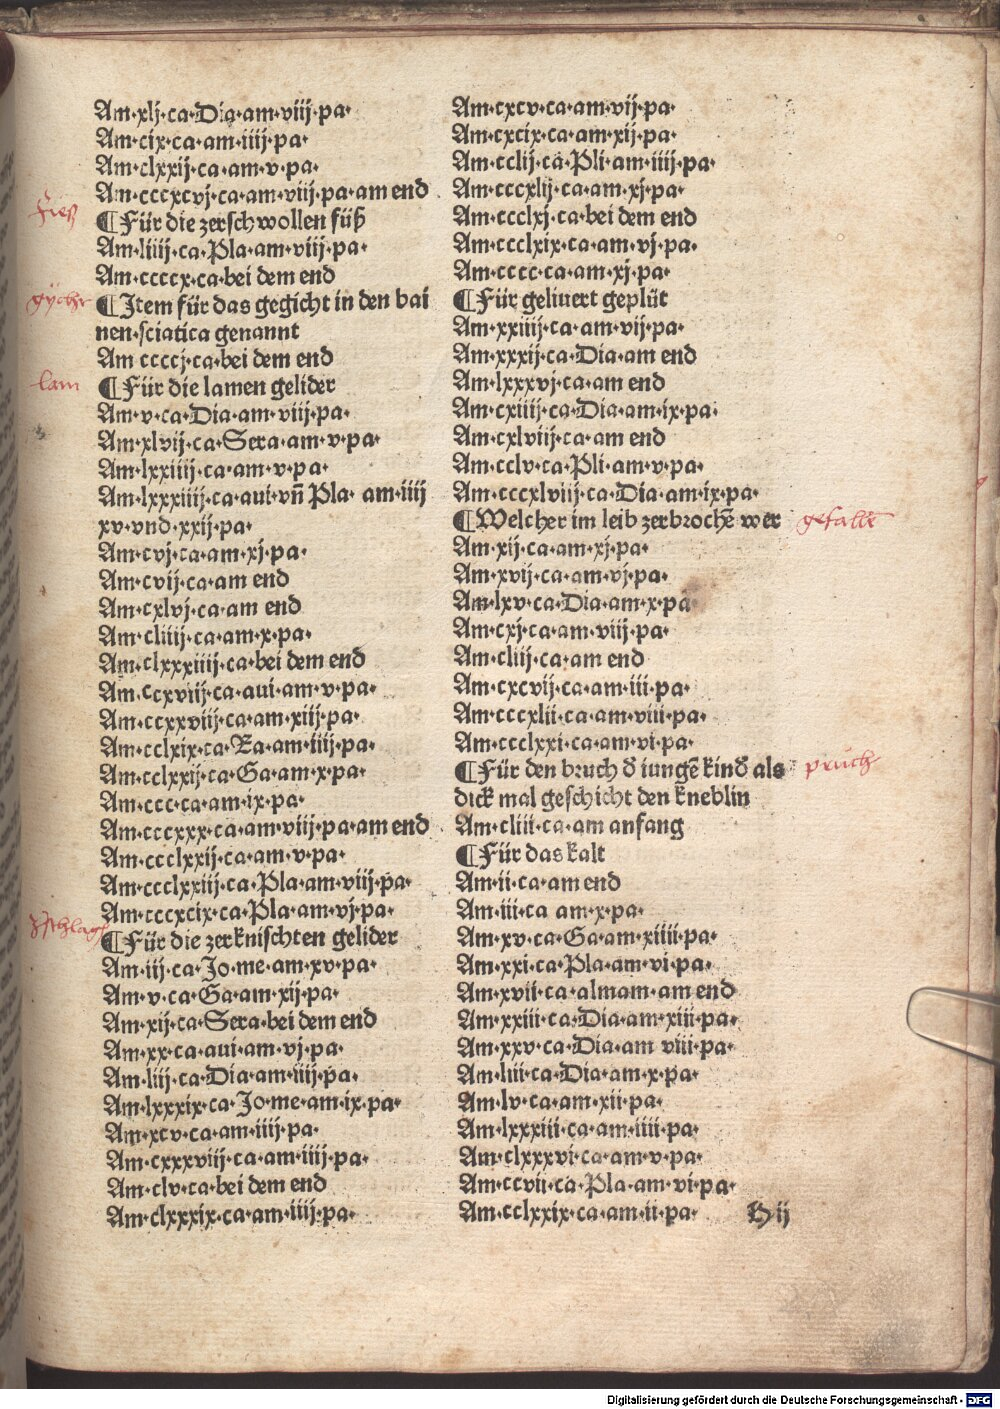 Am·xlj·ca·Dia·am·viij·pa·
Am·cix·ca·am·iiij·pa·
Am·clxxij·ca·am·v·pa·
Am·cccxcvj·ca·am·viij·pa·am end
¶Für die zerschwollen füß
Am·liiij·ca·Pla·am·viij·pa·
Am·ccccx·ca·bei dem end
¶Item für das gegicht in den bai
nen·sciatica genannt
Am ccccj·ca·bei dem end
lam
¶Für die lamen gelider
Am·v·ca·Dia·am·viij·pa·
Am·xlvij·ca·Sera·am·v·pa·
Am·lxxiiij·ca·am·v·pa·
Am·lxxxiiij·ca·aui·vñ Pla· am·iiij
xv·vnd·xxij·pa·
Am·cvj·ca·am·xj·pa·
Am·cvij·ca·am end
Am·cxlvj·ca·am end
Am·cliiij·ca·am·x·pa·
Am·clxxxiiij·ca·bei dem end
Am·ccxviij·ca·aui·am·v·pa·
Am·ccxxviij·ca·am·xiij·pa·
Am·cclxix·ca·Ea·am·iiij·pa·
Am·cclxxij·ca·Ga·am·x·pa·
Am·ccc·ca·am·ix·pa·
Am·cccxxx·ca·am·viij·pa·am end
Am·ccclxxij·ca·am·v·pa·
Am·ccclxxiij·ca·Pla·am·viij·pa·
Am·cccxcix·ca·Pla·am·vj·pa·
¶Für die zerknischten gelider
Am·iij·ca·Jo·me·am·xv·pa·
Am·v·ca·Ga·am·xij·pa·
Am·xij·ca·Sera·bei dem end
Am·xx·ca·aui·am·vj·pa·
Am·liij·ca·Dia·am·iiij·pa·
Am·lxxxix·ca·Jo·me·am·ix·pa·
Am·xcv·ca·am·iiij·pa·
Am·cxxxviij·ca·am·iiij·pa·
Am·clv·ca·bei dem end
Am·clxxxix·ca·am·iiij·pa·
Am·cxcv·ca·am·vij·pa·
Am·cxcix·ca·am·xij·pa·
Am·cclij·ca·Pli·am·iiij·pa·
Am·cccxlij·ca·am·xj·pa·
Am·ccclxj·ca·bei dem end
Am·ccclxix·ca·am·vj·pa·
Am·cccc·ca·am·xj·pa·
¶Für geliuert geplüt
Am·xxiiij·ca·am·vij·pa·
Am·xxxij·ca·Dia·am end
Am·lxxxvj·ca·am end
Am·cxiiij·ca·Dia·am·ix·pa·
Am·cxlviij·ca·am end
Am·cclv·ca·Pli·am·v·pa·
Am·cccxlviij·ca·Dia·am·ix·pa·
¶Welcher im leib zerbrochē wer
gefallē
Am·xij·ca·am·xj·pa·
Am·xvij·ca·am·vj·pa·
Am·lxv·ca·Dia·am·x·pa
Am·cxj·ca·am·viij·pa·
Am·cliij·ca·am end
Am·cxcvij·ca·am·iii·pa·
Am·cccxlii·ca·am·viii·pa·
Am·ccclxxi·ca·am·vi·pa·
¶Für den bruch d̄ iungē kind̄ als
pruch
dick mal geschicht den kneblin
Am·cliii·ca·am anfang
¶Für das kalt
Am·ii·ca·am end
Am·iii·ca am·x·pa·
Am·xv·ca·Ga·am·xiiii·pa·
Am·xxi·ca·Pla·am·vi·pa·
Am·xvii·ca·almam·am end
Am·xxiii·ca·Dia·am·xiii·pa·
Am·xxv·ca·Dia·am viii·pa·
Am·liii·ca·Dia·am·x·pa·
Am·lv·ca·am·xii·pa·
Am·lxxxiii·ca·am·iiii·pa·
Am·clxxxvi·ca·am·v·pa·
Am·ccvii·ca·Pla·am·vi·pa·
Am·cclxxix·ca·am·ii·pa·
H ij
Digitalisierung gefördert durch die Deutsche Forschungsgemeinschaft - DFG